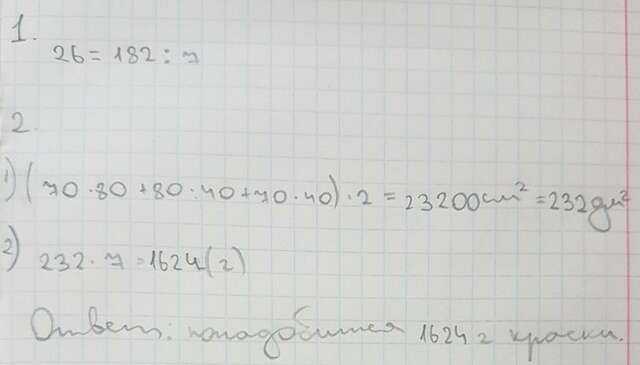 1.
26 = 182 : 7
2.
1) (70 · 80 + 80 · 40 + 70 · 40) · 2 = 23200 см² = 232 дм²
2) 232 · 7 = 1624 (г)
Ответ: понадобится 1624 г краски.